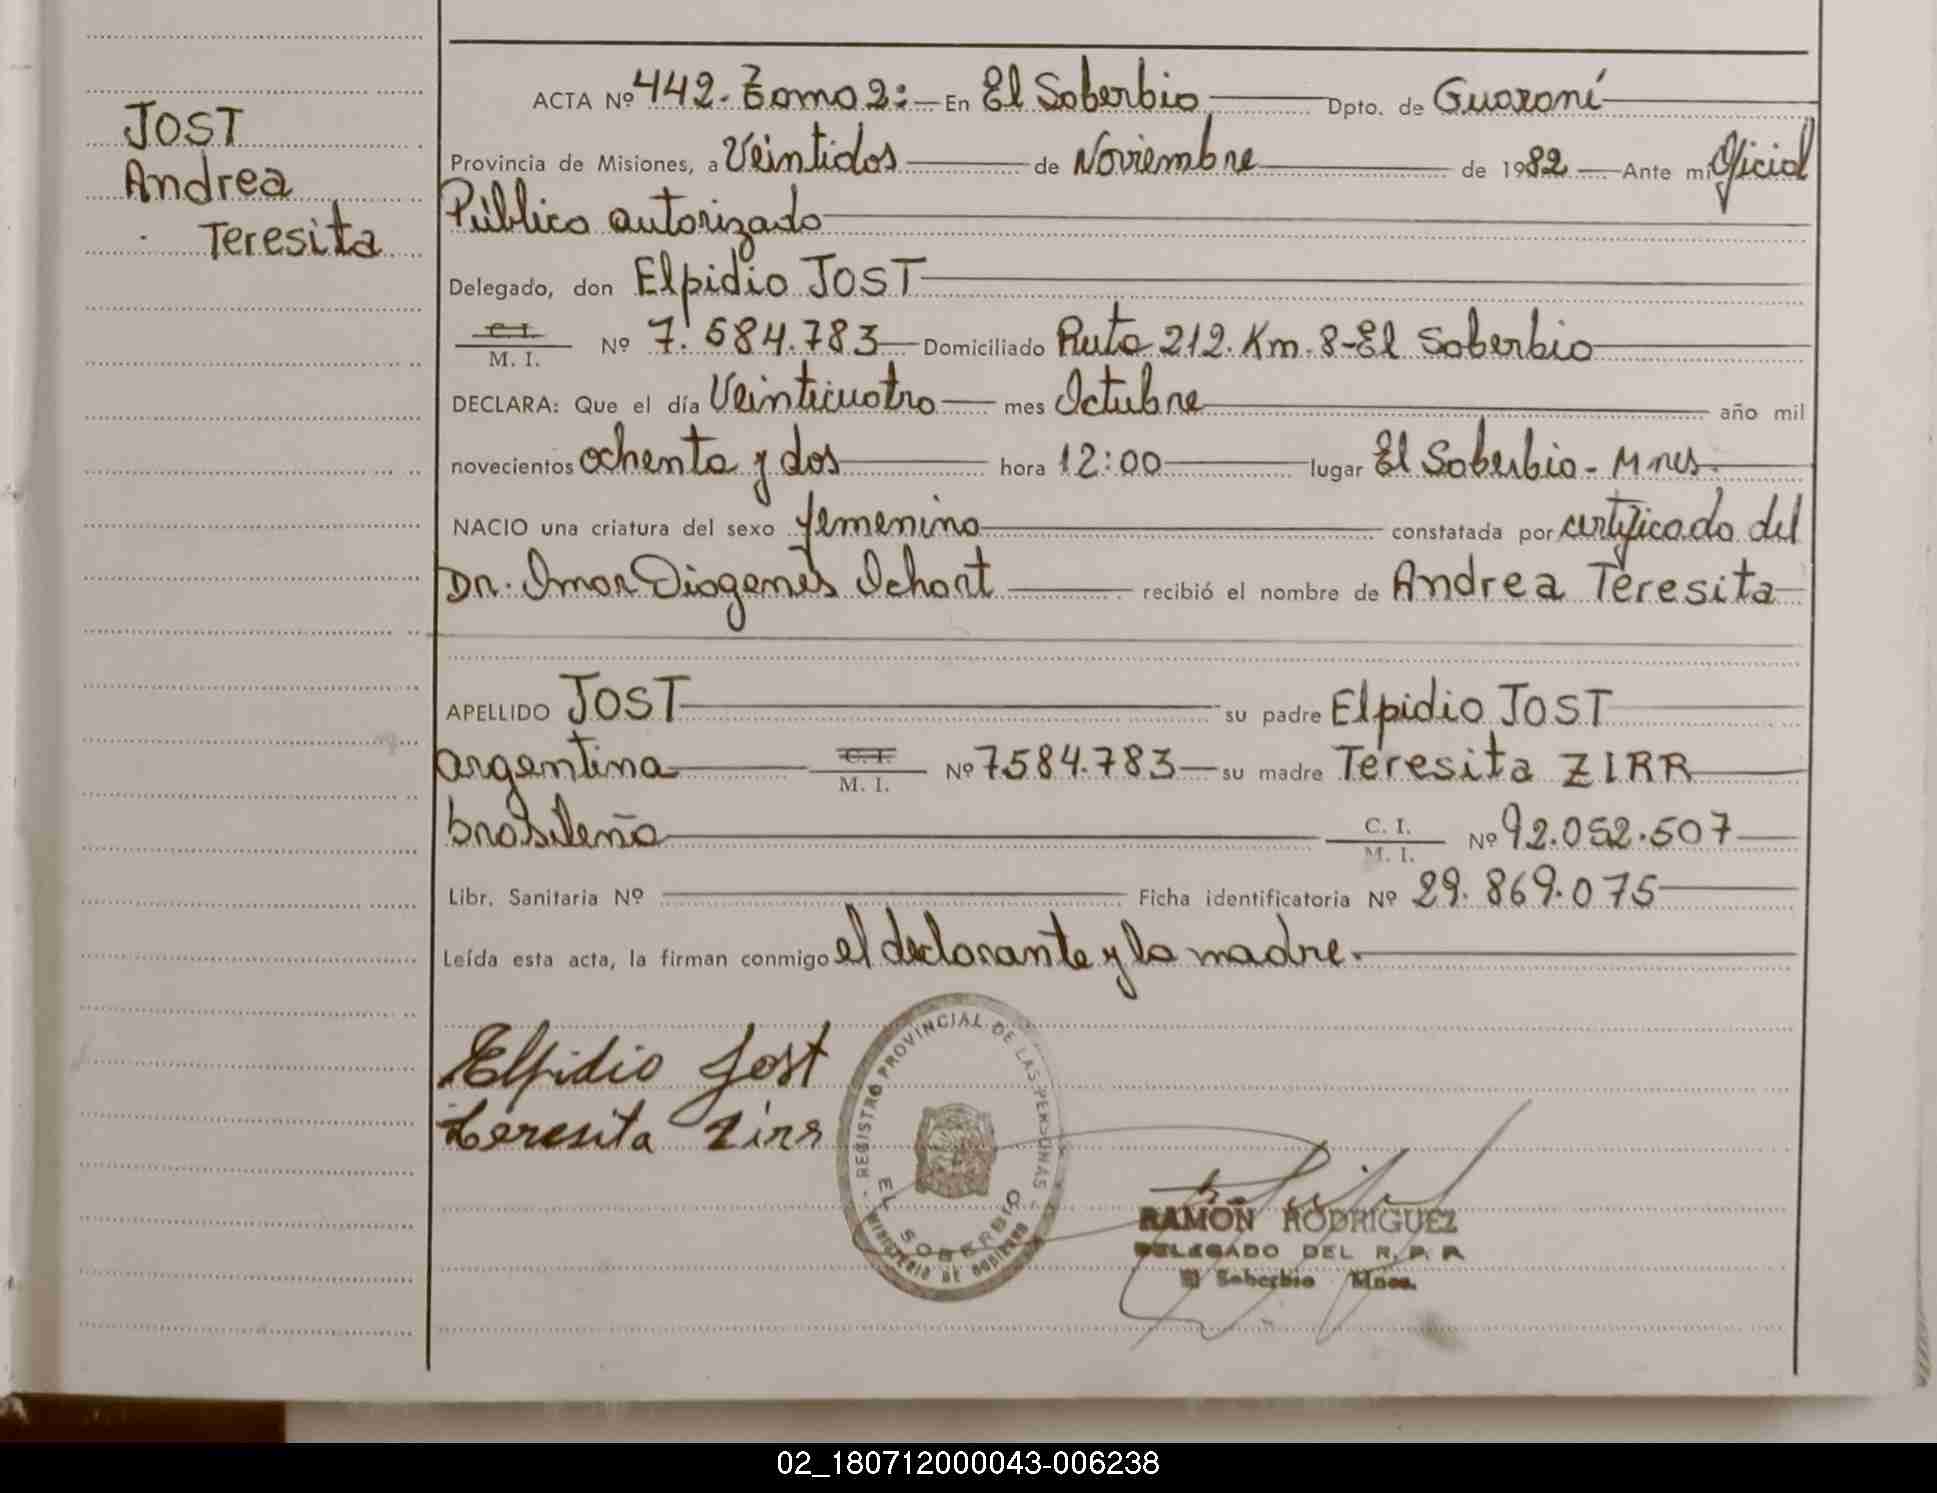 JOST
Andrea
Teresita
ACTA Nº 442. Tomo 2:- En El Soberbio Dpto. de Guaraní
Provincia de Misiones, a Veintidos de Noviembre de 1982 Ante mi Oficial
Público autorizado
Delegado, don Elpidio JOST
C. I.
M. I. Nº 7.584.783 Domiciliado Ruta 212. Km. 8-El Soberbio
DECLARA: Que el día Veinticuatro mes Octubre año mil
novecientos ochenta y dos hora 12:00 lugar El Soberbio - Mnes.
NACIO una criatura del sexo femenino constatada por certificado del
Dr. Omar Diogenes Ochart recibió el nombre de Andrea Teresita
APELLIDO JOST su padre Elpidio JOST
argentina C. I. M. I. Nº 7584.783 su madre Teresita ZIRR
brasileña C. I. M. I. Nº 92.052.507
Libr. Sanitaria Nº Ficha identificatoria Nº 29.869.075
Leída esta acta, la firman conmigo el declarante y la madre.
Elpidio Jost
Teresita Zirr
REGISTRO PROVINCIAL DE LAS PERSONAS
EL SOBERBIO
MINISTERIO DE GOBIERNO
RAMÓN RODRIGUEZ
DELEGADO DEL R. P. P.
El Soberbio Mnes.
02_180712000043-006238